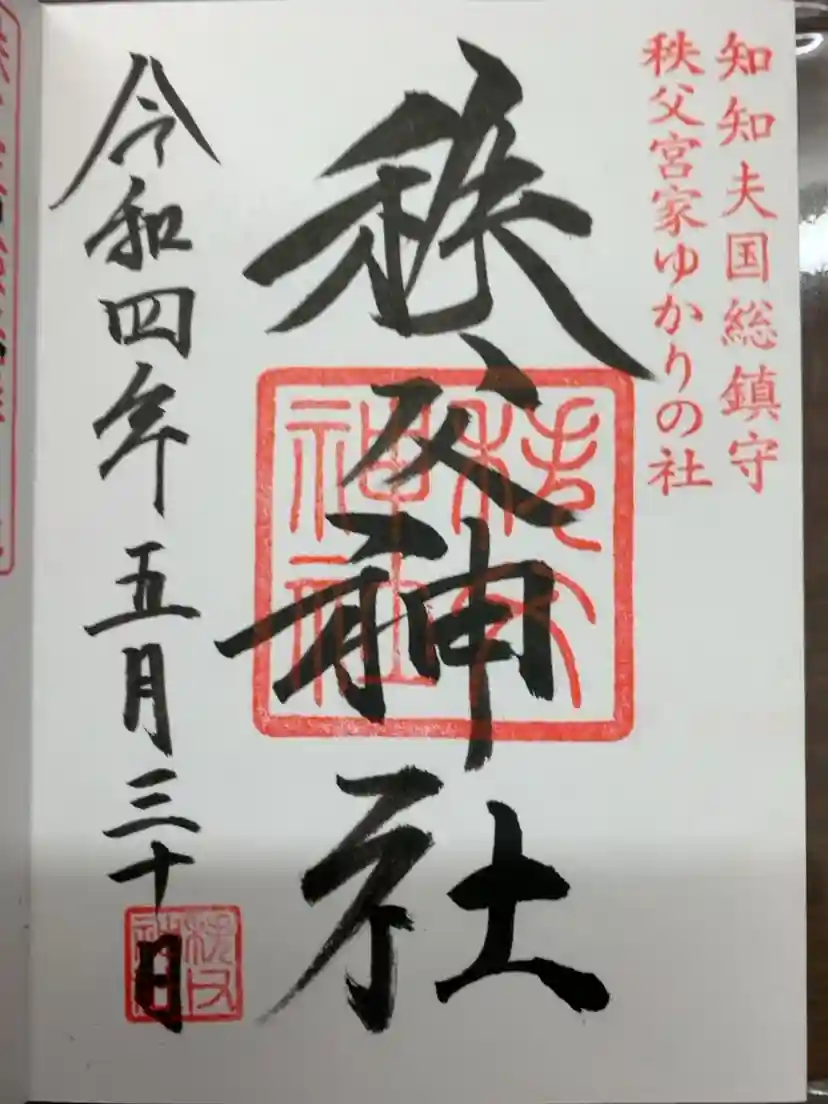 知知夫国総鎮守
秩父宮家ゆかりの社
秩父神社
秩父
神社
令和四年五月三十日